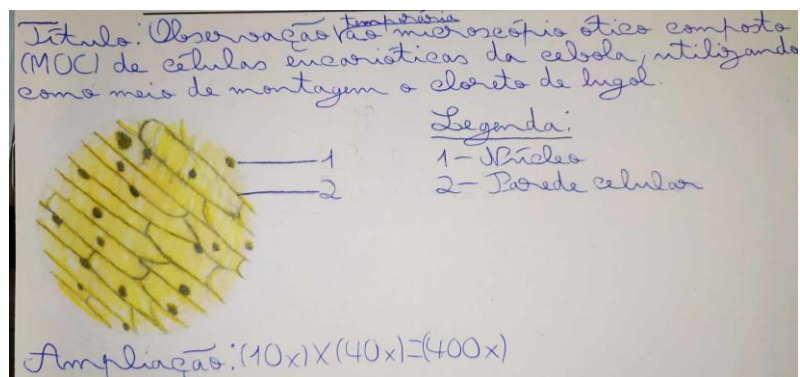 Título: Observação temporária ao microscópio ótico composto
(MOC) de células eucarióticas da cebola, utilizando
como meio de montagem o cloreto de lugol.
Legenda:
1
1- Núcleo
2
2- Parede celular
Ampliação: (10x)X(40x)=(400x)